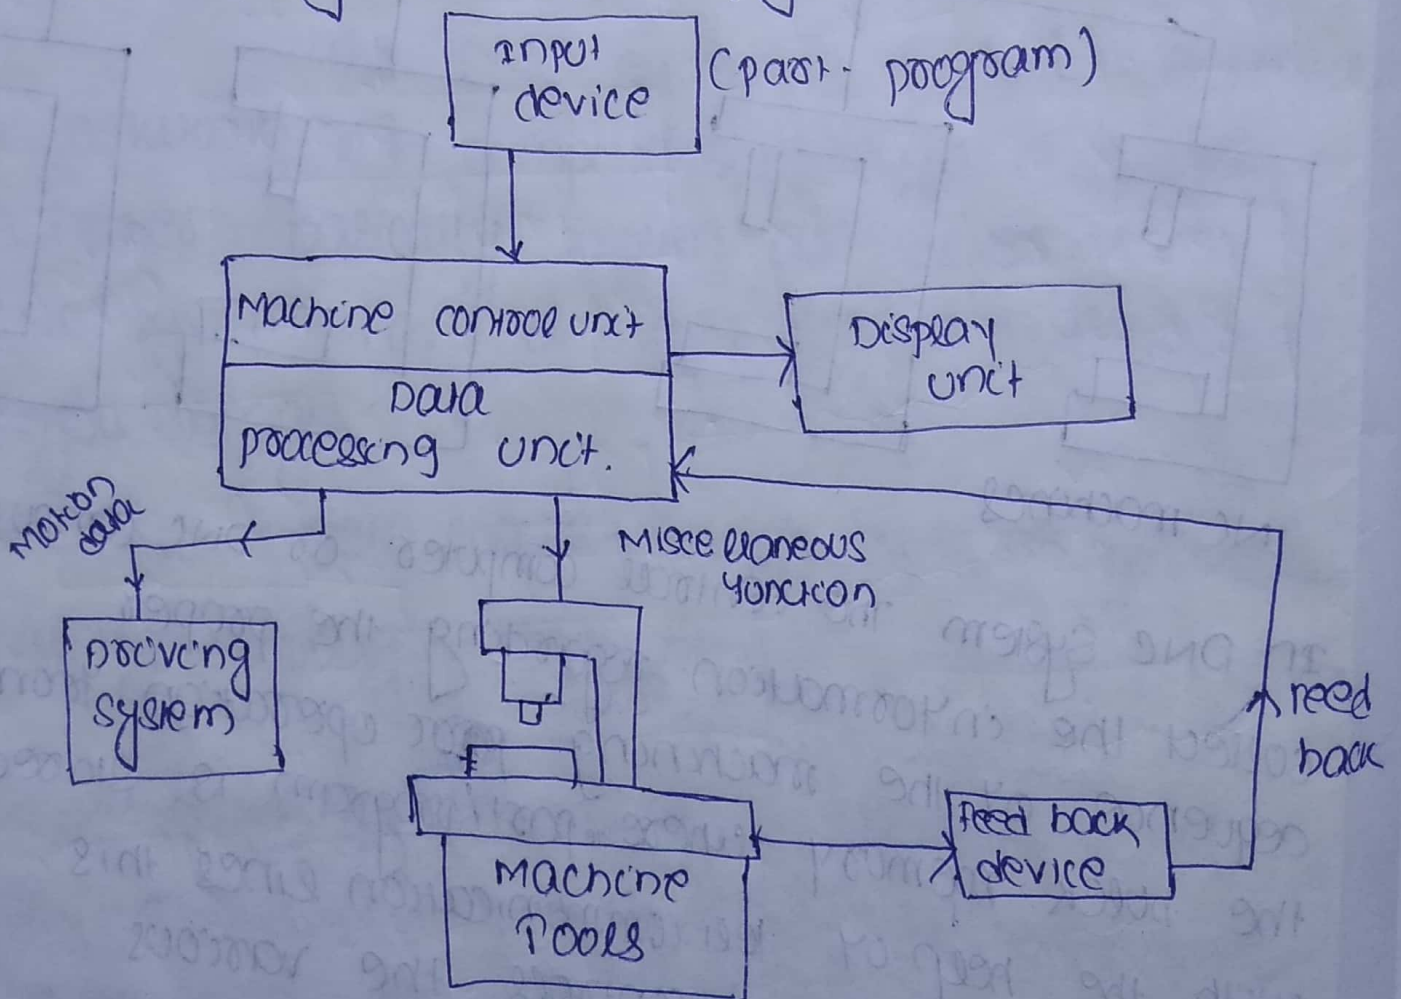 Input
device
(part - program)
Machine control unit
Data
processing unit.
Display
unit
Motion
data
Miscellaneous
function
Driving
system
feed
back
Feed back
device
Machine
Tools